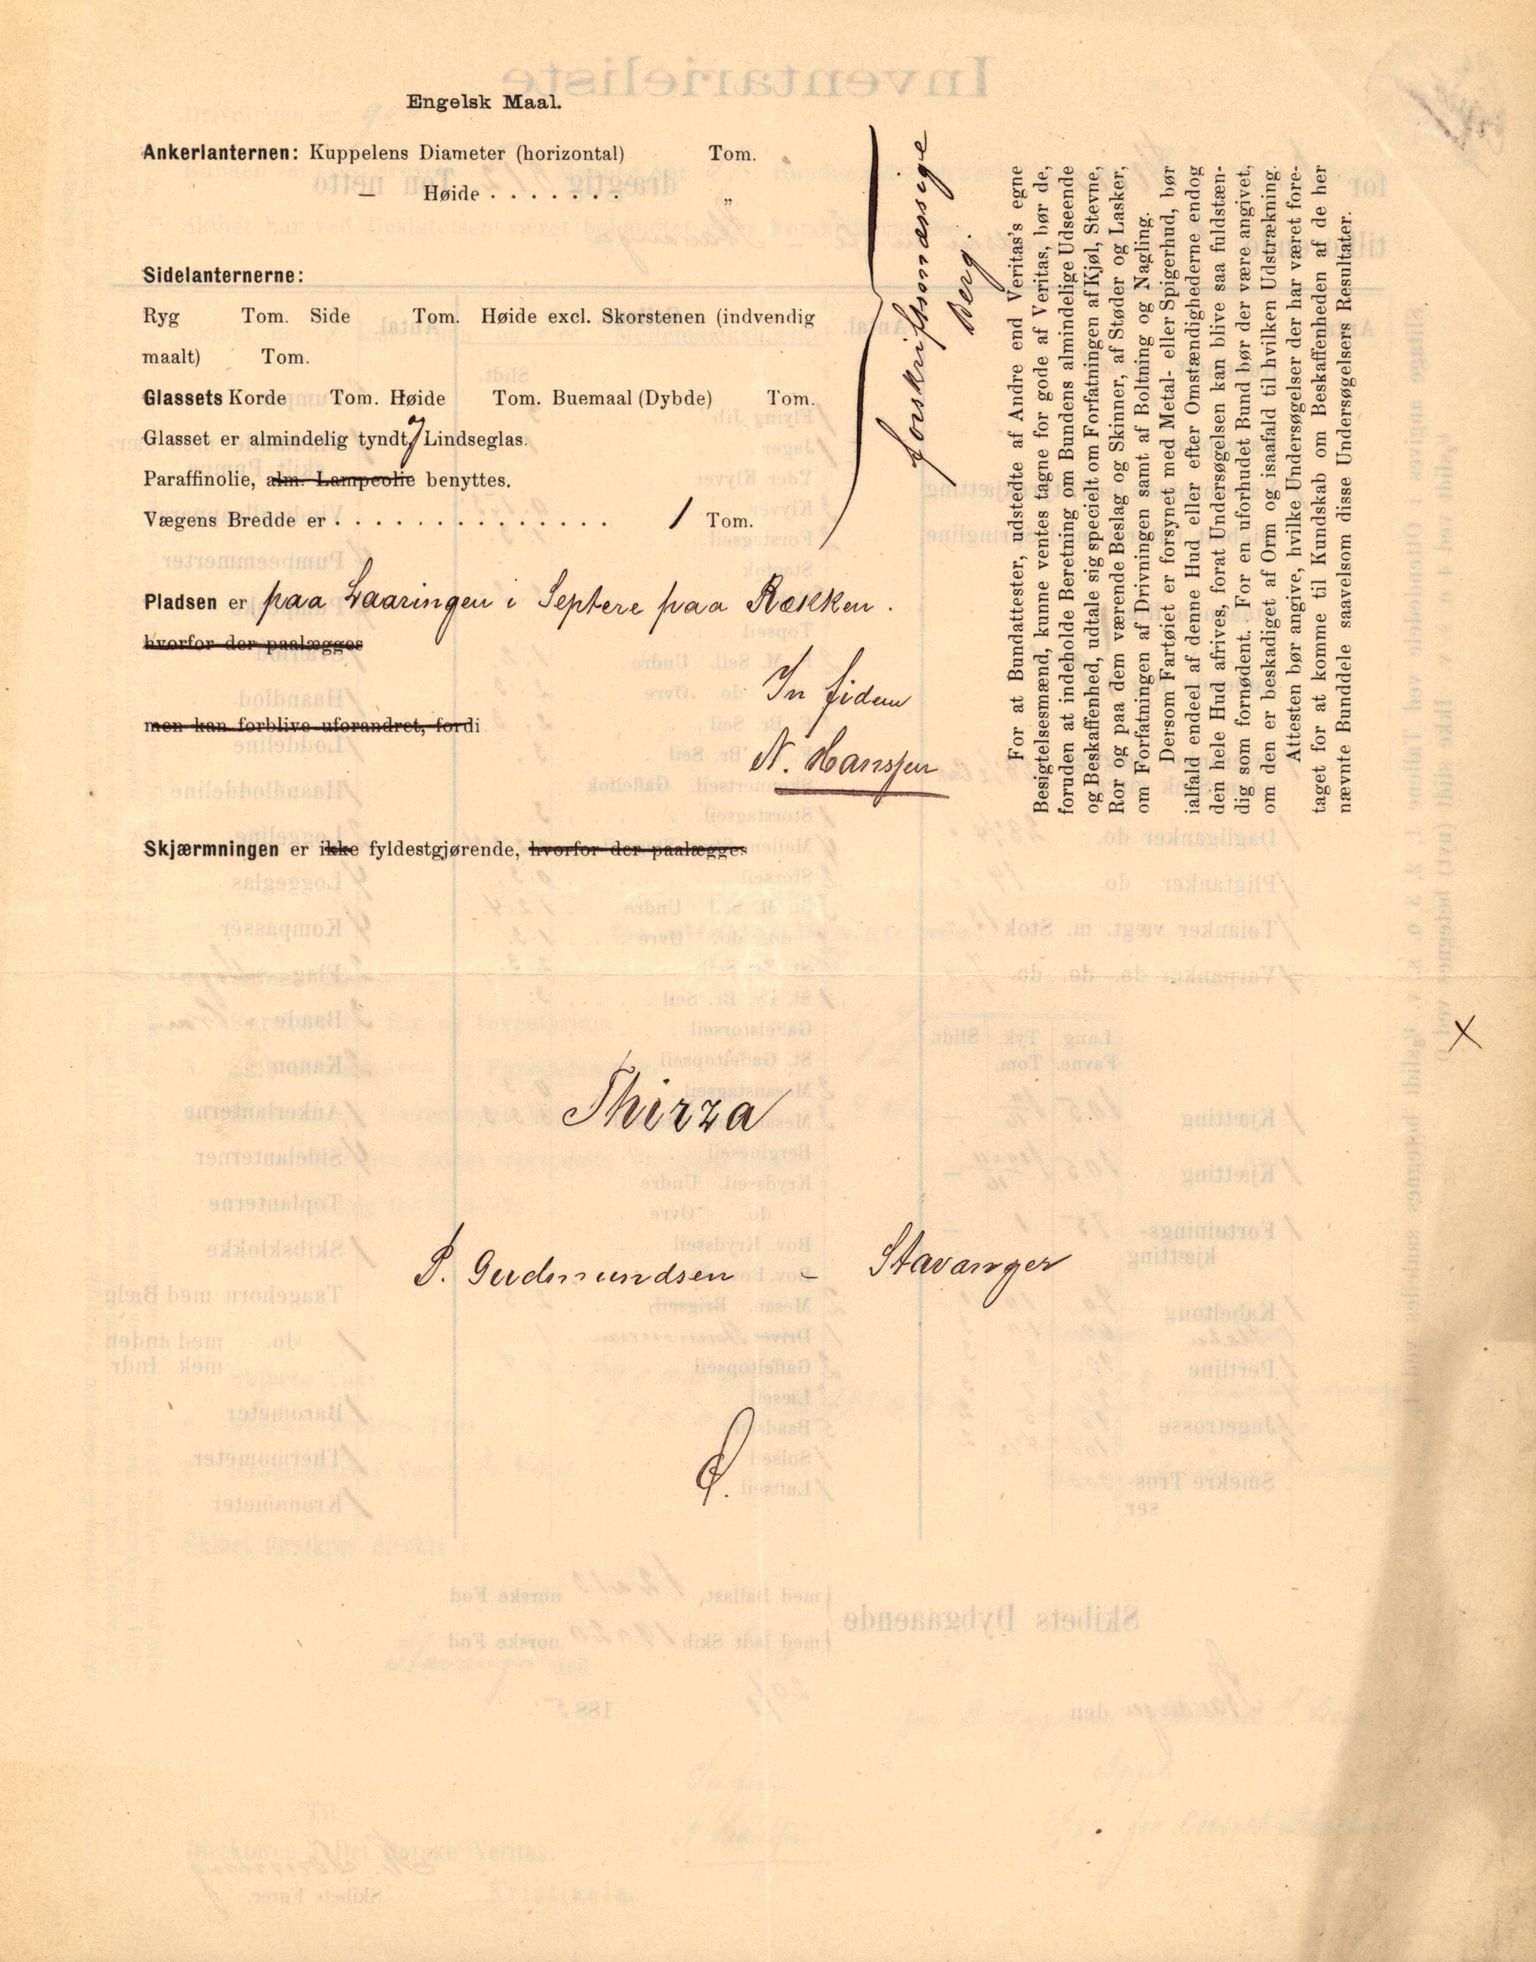 Engelsk Maal.
Ankerlanternen: Kuppelens Diameter (horizontal) Tom.
— Høide . . . . . . . „
Sidelanternerne:
Ryg Tom. Side Tom. Høide excl. Skorstenen (indvendig
maalt) Tom.
Glassets Korde Tom. Høide Tom. Buemaal (Dybde) Tom.
Glasset er almindelig tyndt, Lindseglas.
Paraffinolie, alm. Lampeolie benyttes.
Vægens Bredde er . . . . . . . . . . . . . . 1 Tom.
forskriftsmæssige
Berg.
Pladsen er paa Laaringen i Septere paa Rækken.
hvorfor der paalægges
In fidem
men kan forblive uforandret, fordi
N. Hanssen
Skjærmningen er ikke fyldestgjørende, hvorfor der paalægges
For at Bundattester, udstedte af Andre end Veritas's egne
Besigtelsesmænd, kunne ventes tagne for gode af Veritas, bør de,
foruden at indeholde Beretning om Bundens almindelige Udseende
og Beskaffenhed, udtale sig specielt om Forfatningen af Kjøl, Stevne,
Ror og paa dem værende Beslag og Skinner, af Støder og Lasker,
om Forfatningen af Drivningen samt af Boltning og Nagling.
Dersom Fartøiet er forsynet med Metal- eller Spigerhud, bør
ialfald endeel af denne Hud eller efter Omstændighederne endog
den hele Hud afrives, forat Undersøgelsen kan blive saa fuldstæn-
dig som fornødent. For en uforhudet Bund bør der være angivet,
om den er beskadiget af Orm og isaafald til hvilken Udstrækning.
Attesten bør angive, hvilke Undersøgelser der har været fore-
taget for at komme til Kundskab om Beskaffenheden af de her
nævnte Bunddele saavelsom disse Undersøgelsers Resultater.
x
Thirza
P. Gudmundsen – Stavanger